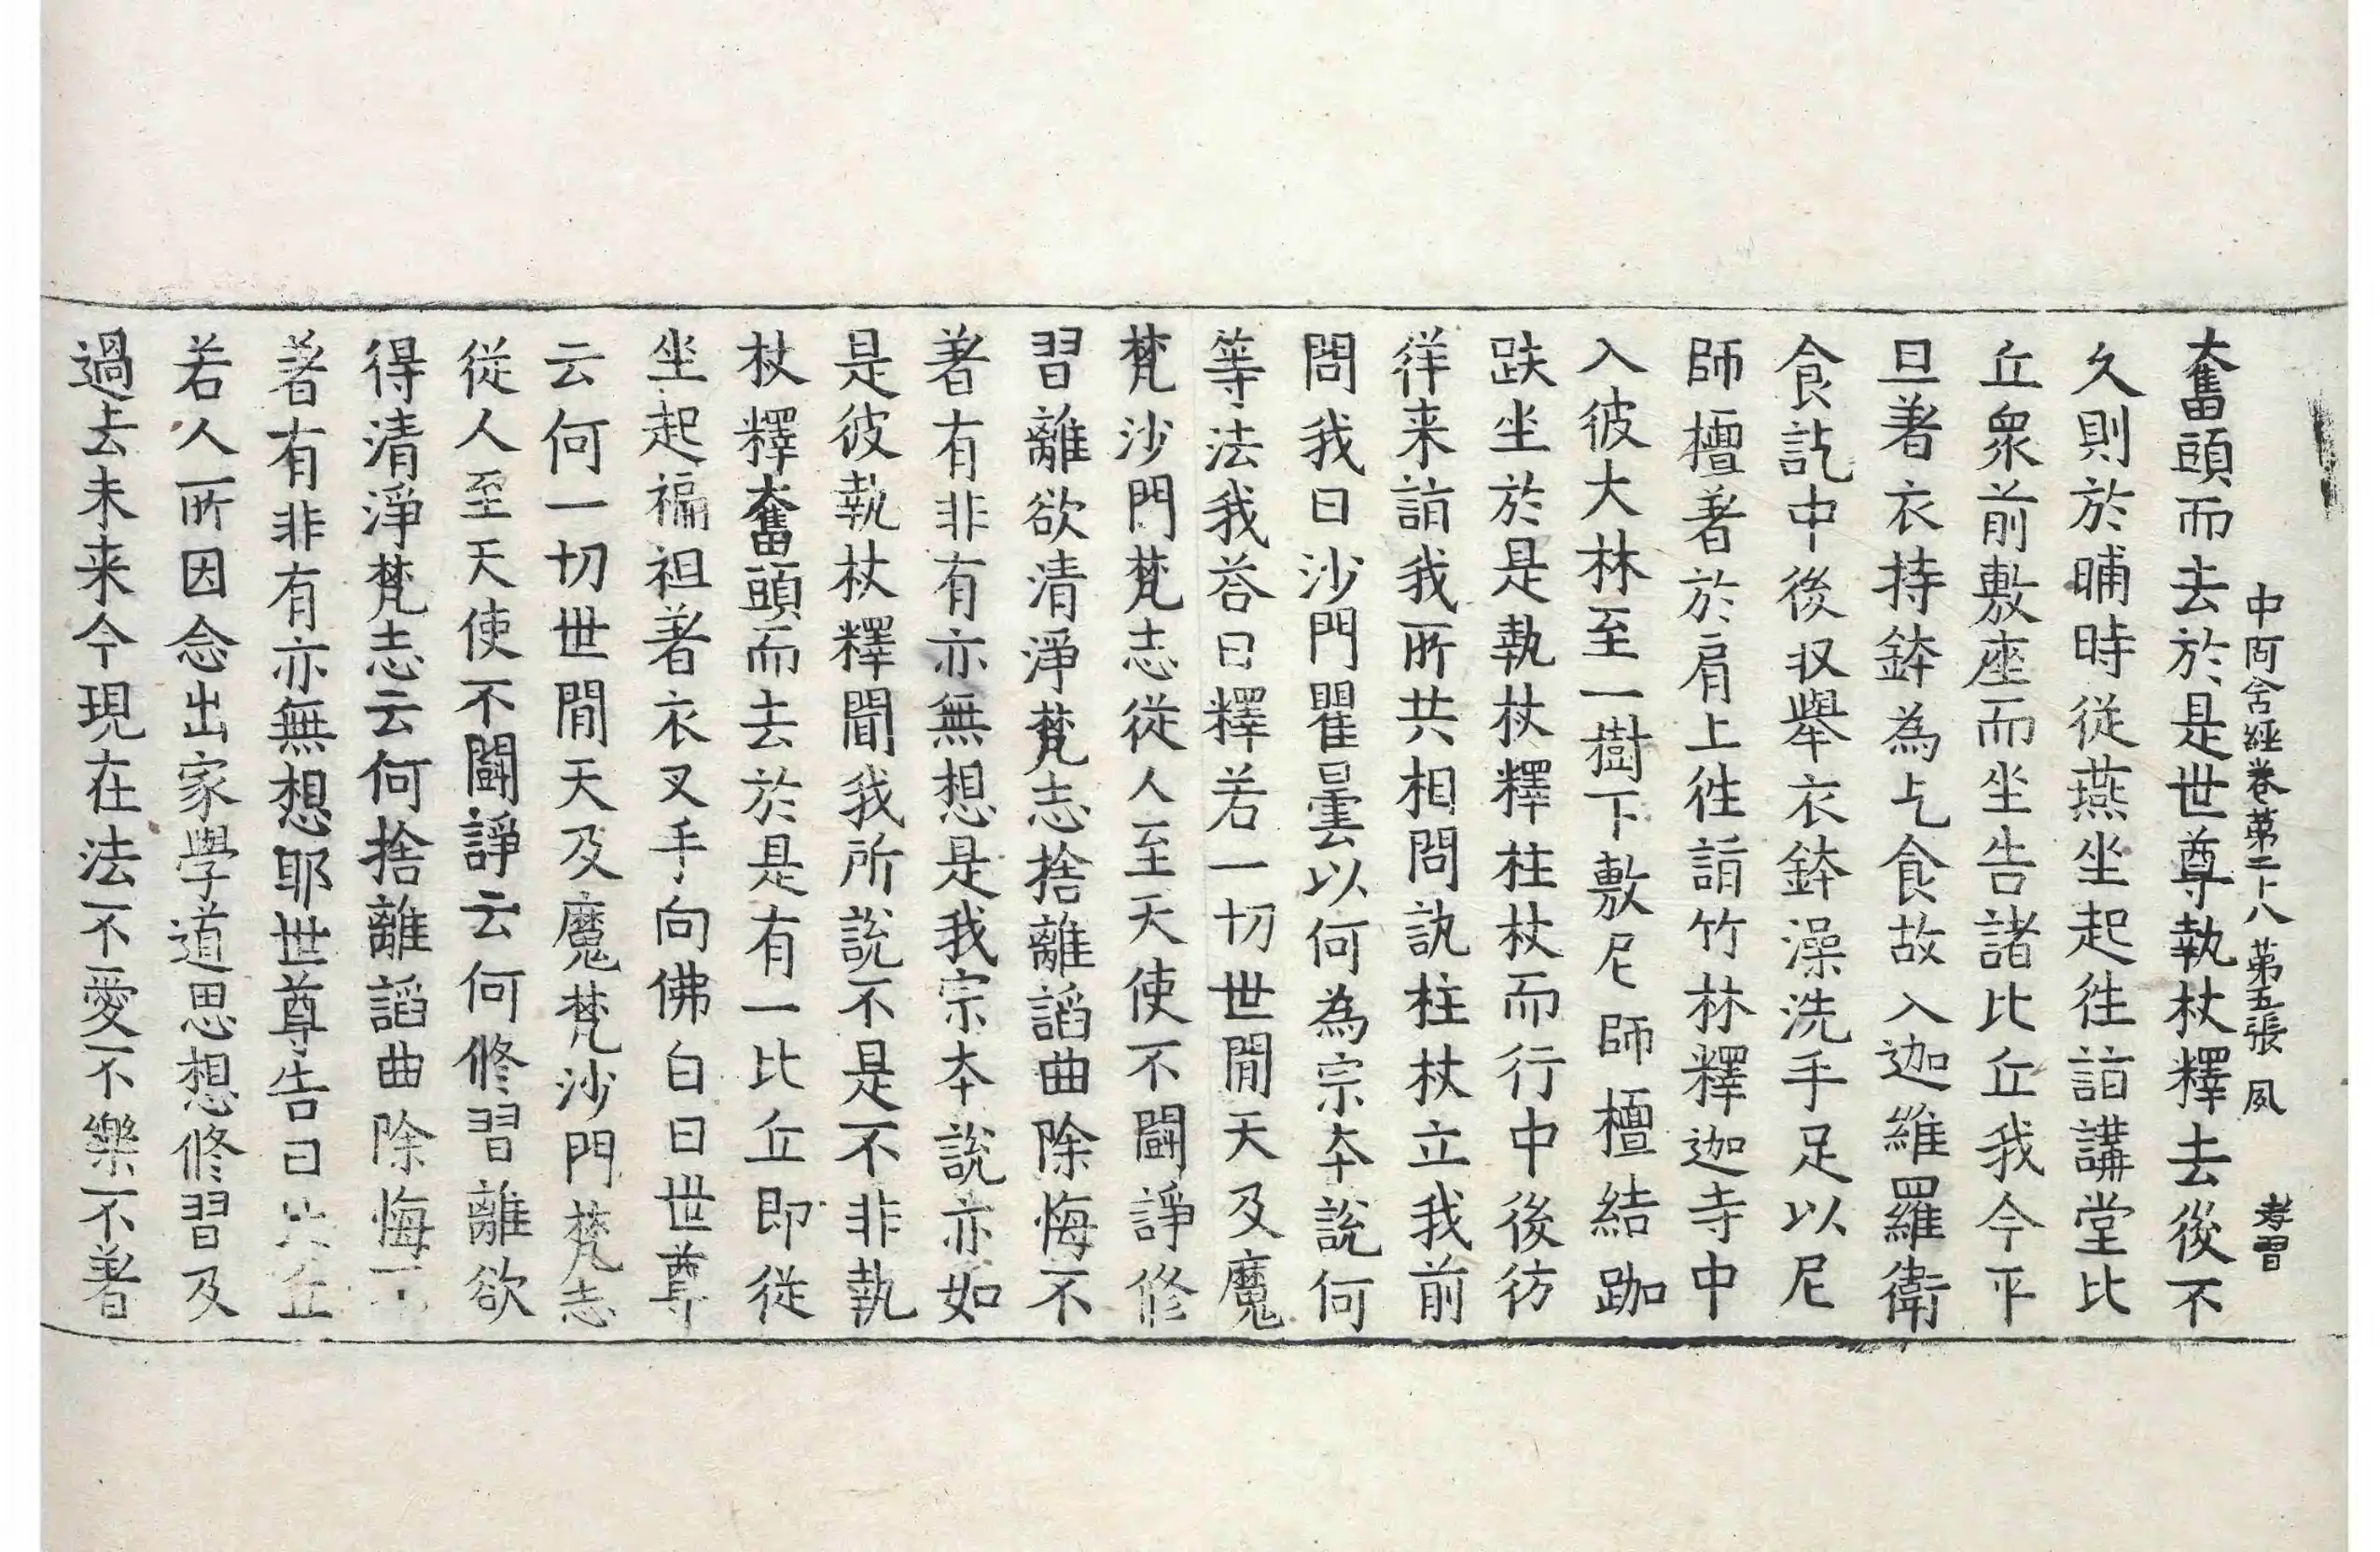 中阿含經卷第二十八 第五張 夙 孝習
奮頭而去於是世尊執杖釋去後不
久則於晡時從燕坐起徃詣講堂比
丘衆前敷座而坐告諸比丘我今平
旦著衣持鉢為乞食故入迦維羅衛
食訖中後収舉衣鉢澡洗手足以尼
師檀著於肩上徃詣竹林釋迦寺中
入彼大林至一樹下敷尼師檀結跏
趺坐於是執杖釋柱杖而行中後彷
徉来詣我所共相問訊柱杖立我前
問我曰沙門瞿曇以何為宗夲說何
等法我荅曰釋若一切世間天及魔
梵沙門梵志從人至天使不鬪諍修
習離欲清淨梵志捨離諂曲除悔不
著有非有亦無想是我宗夲說亦如
是彼執杖釋聞我所說不是不非執
杖釋奮頭而去於是有一比丘即從
坐起褊袒著衣叉手向佛白曰世尊
云何一切世間天及魔梵沙門梵志
從人至天使不鬪諍云何修習離欲
得清淨梵志云何捨離諂曲除悔不
著有非有亦無想耶世尊告曰比丘
若人所因念出家學道思想修習及
過去未来今現在法不愛不樂不著